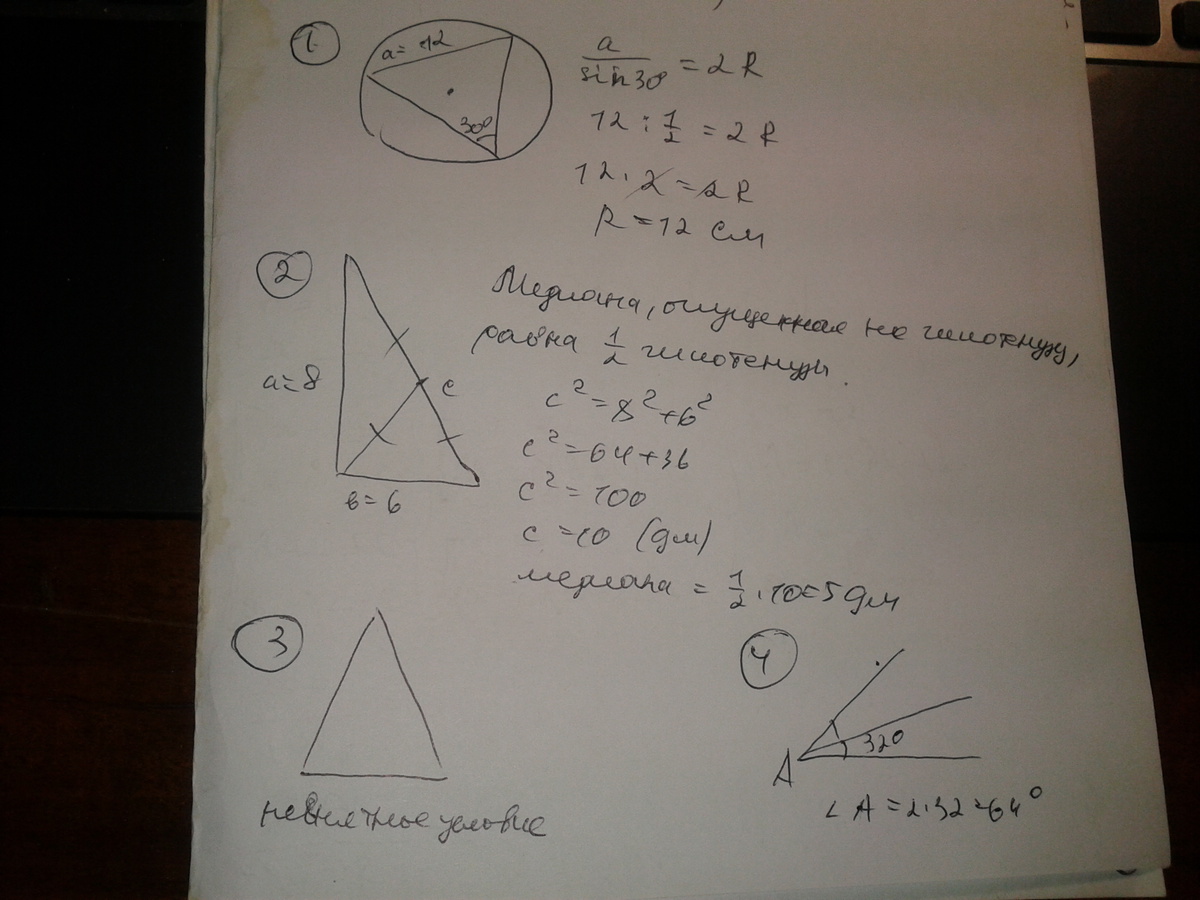 1
a = 12
30°
a/sin30° = 2R
12 : 1/2 = 2R
12 · 2 = 2R
R = 12 см
2
a=8
c
в=6
Медиана, опущенная на гипотенузу,
равна 1/2 гипотенузы.
c² = 8² + 6²
c² = 64 + 36
c² = 100
c = 10 (дм)
медиана = 1/2 · 10 = 5 дм
3
невнятное условие
4
A
32°
∠A = 2·32 = 64°